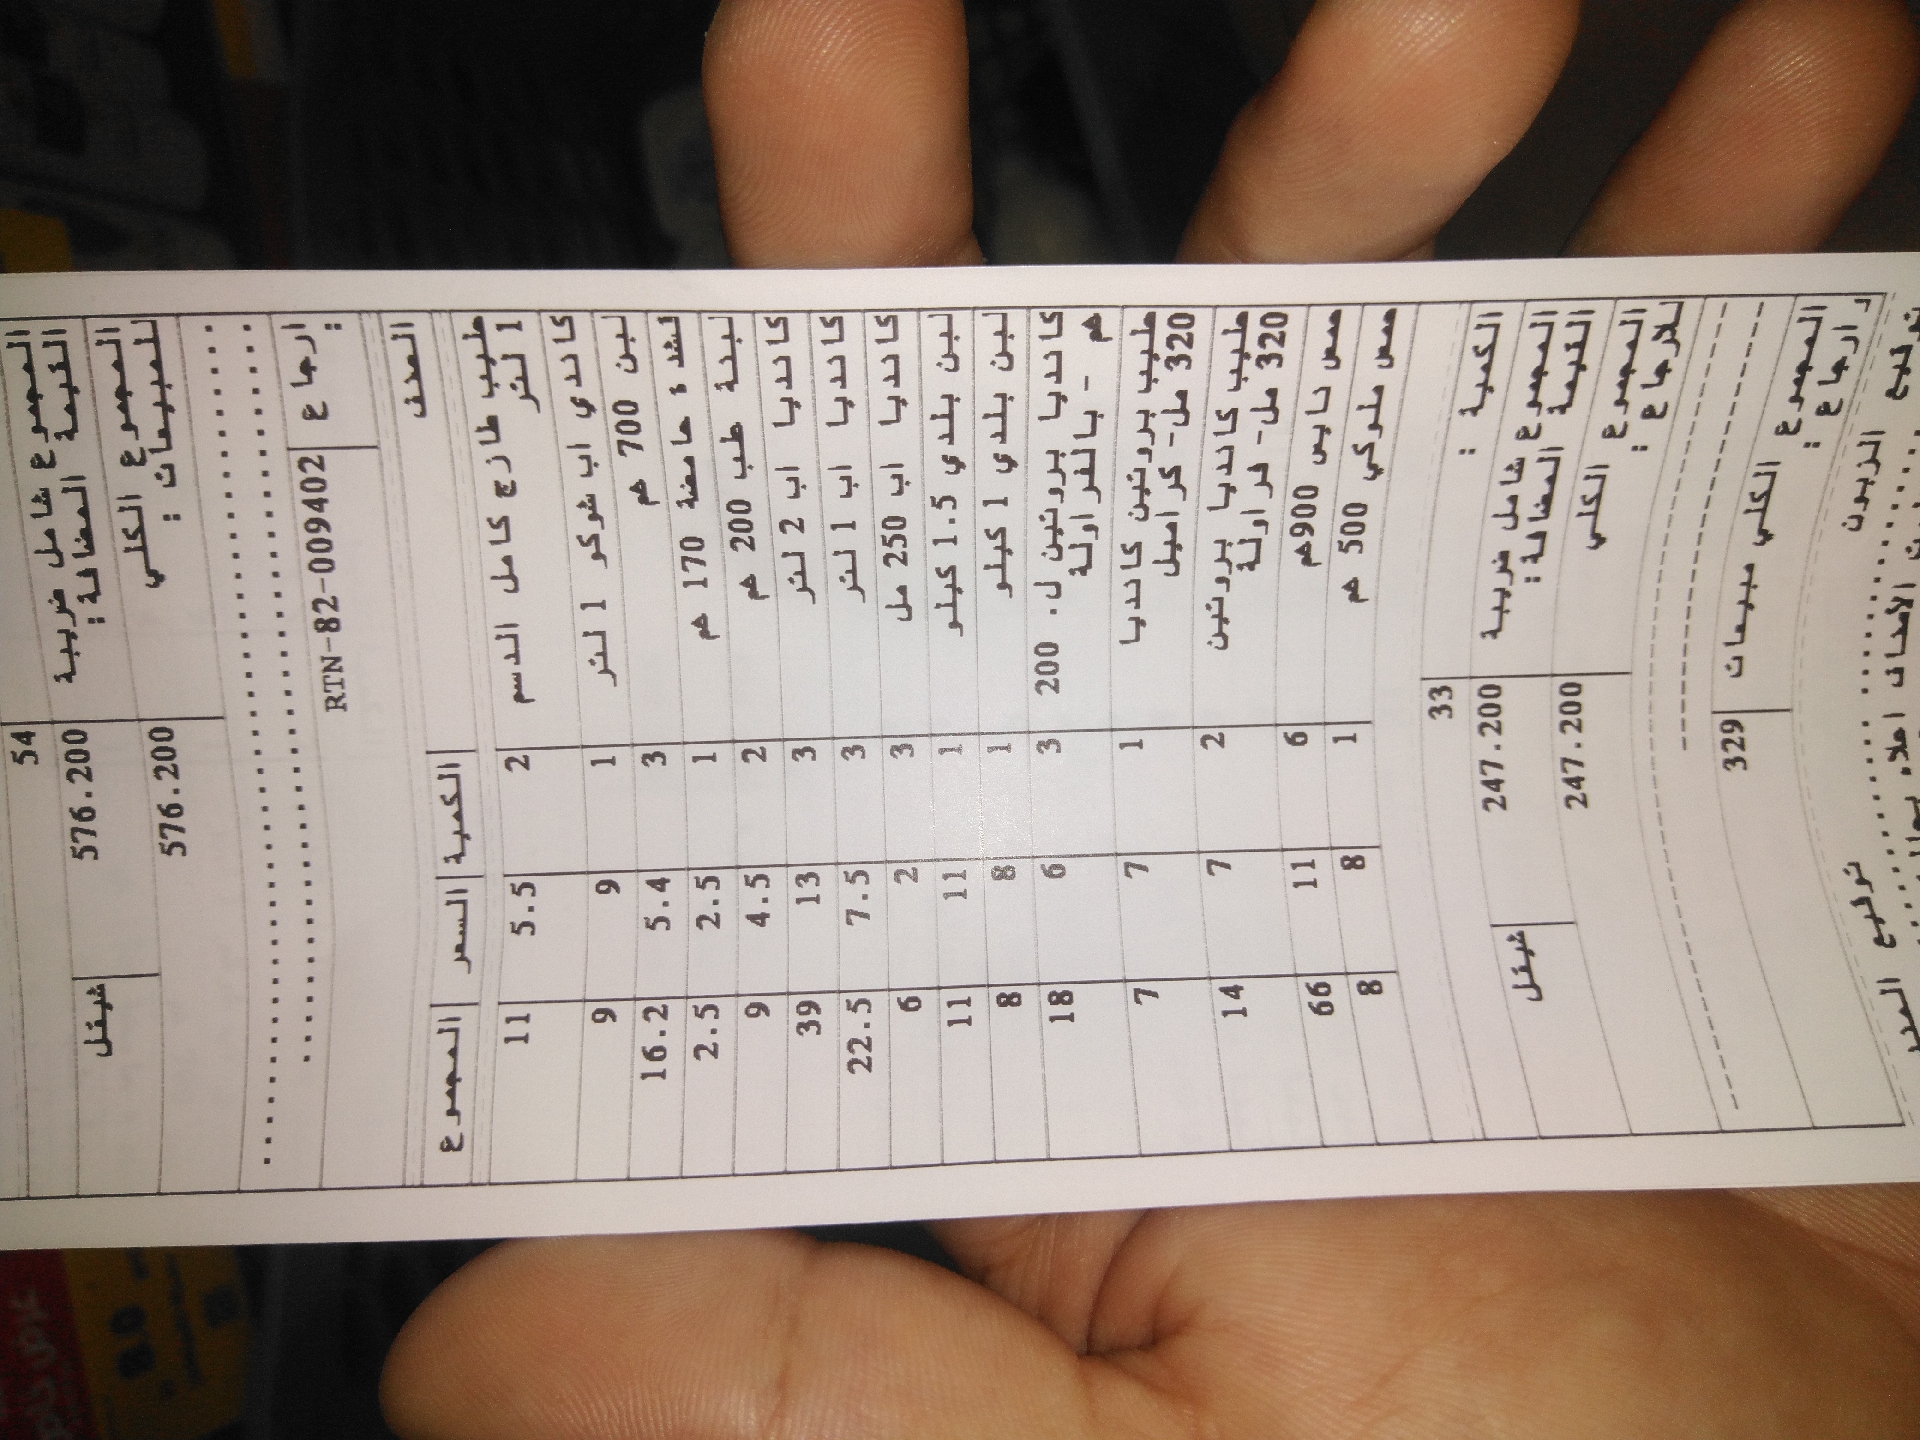 54
المجموع شامل ضريبة القيمة المضافة: 576.200 شيقل
المجموع الكلي للمبيعات: 576.200
ارجاع : RTN-82-009402
الصنف الكمية السعر المجموع
حليب طازج كامل الدسم 2 5.5 11
1 لتر
كاندي اب شوكو 1 لتر 1 9 9
لبن 700 غم 3 5.4 16.2
قشدة حامضة 170 غم 1 2.5 2.5
لبنة طب 200 غم 2 4.5 9
كانديا اب 2 لتر 3 13 39
كانديا اب 1 لتر 3 7.5 22.5
كانديا اب 250 مل 3 2 6
لبن بلدي 1.5 كيلو 1 11 11
لبن بلدي 1 كيلو 1 8 8
كانديا بروتين ل. 200 3 6 18
غم - بالفراولة
حليب بروتين كانديا 1 7 7
320 مل- كراميل
حليب كانديا بروتين 2 7 14
320 مل- فراولة
حمص نايس 900غم 6 11 66
حمص ملوكي 500 غم 1 8 8
الكمية : 33
المجموع شامل ضريبة 247.200 شيقل
القيمة المضافة:
المجموع الكلي 247.200
للارجاع :
المجموع الكلي مبيعات 329
ارجاع :
توقيع الزبون توقيع